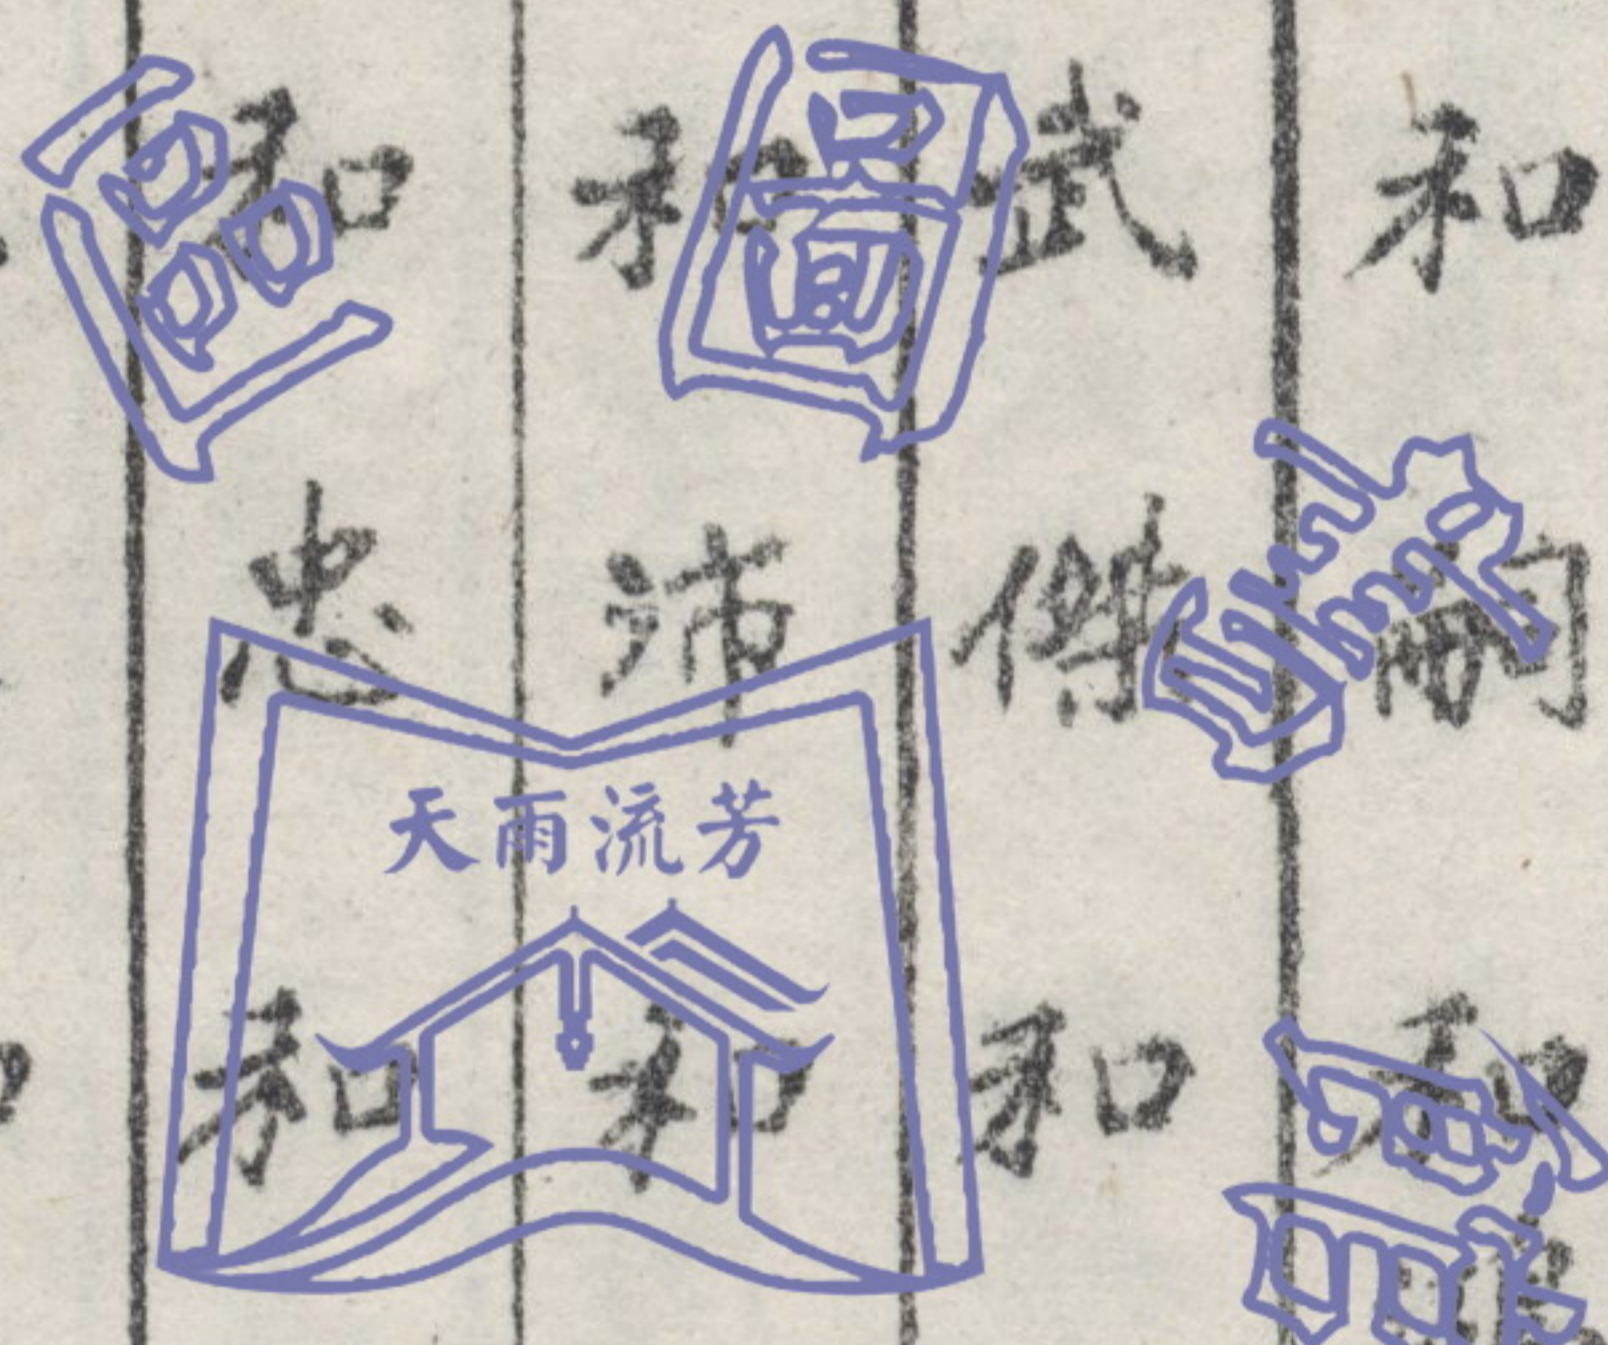 和嗣和
武傑和
和沛和
和忠和
區圖書
天雨流芳